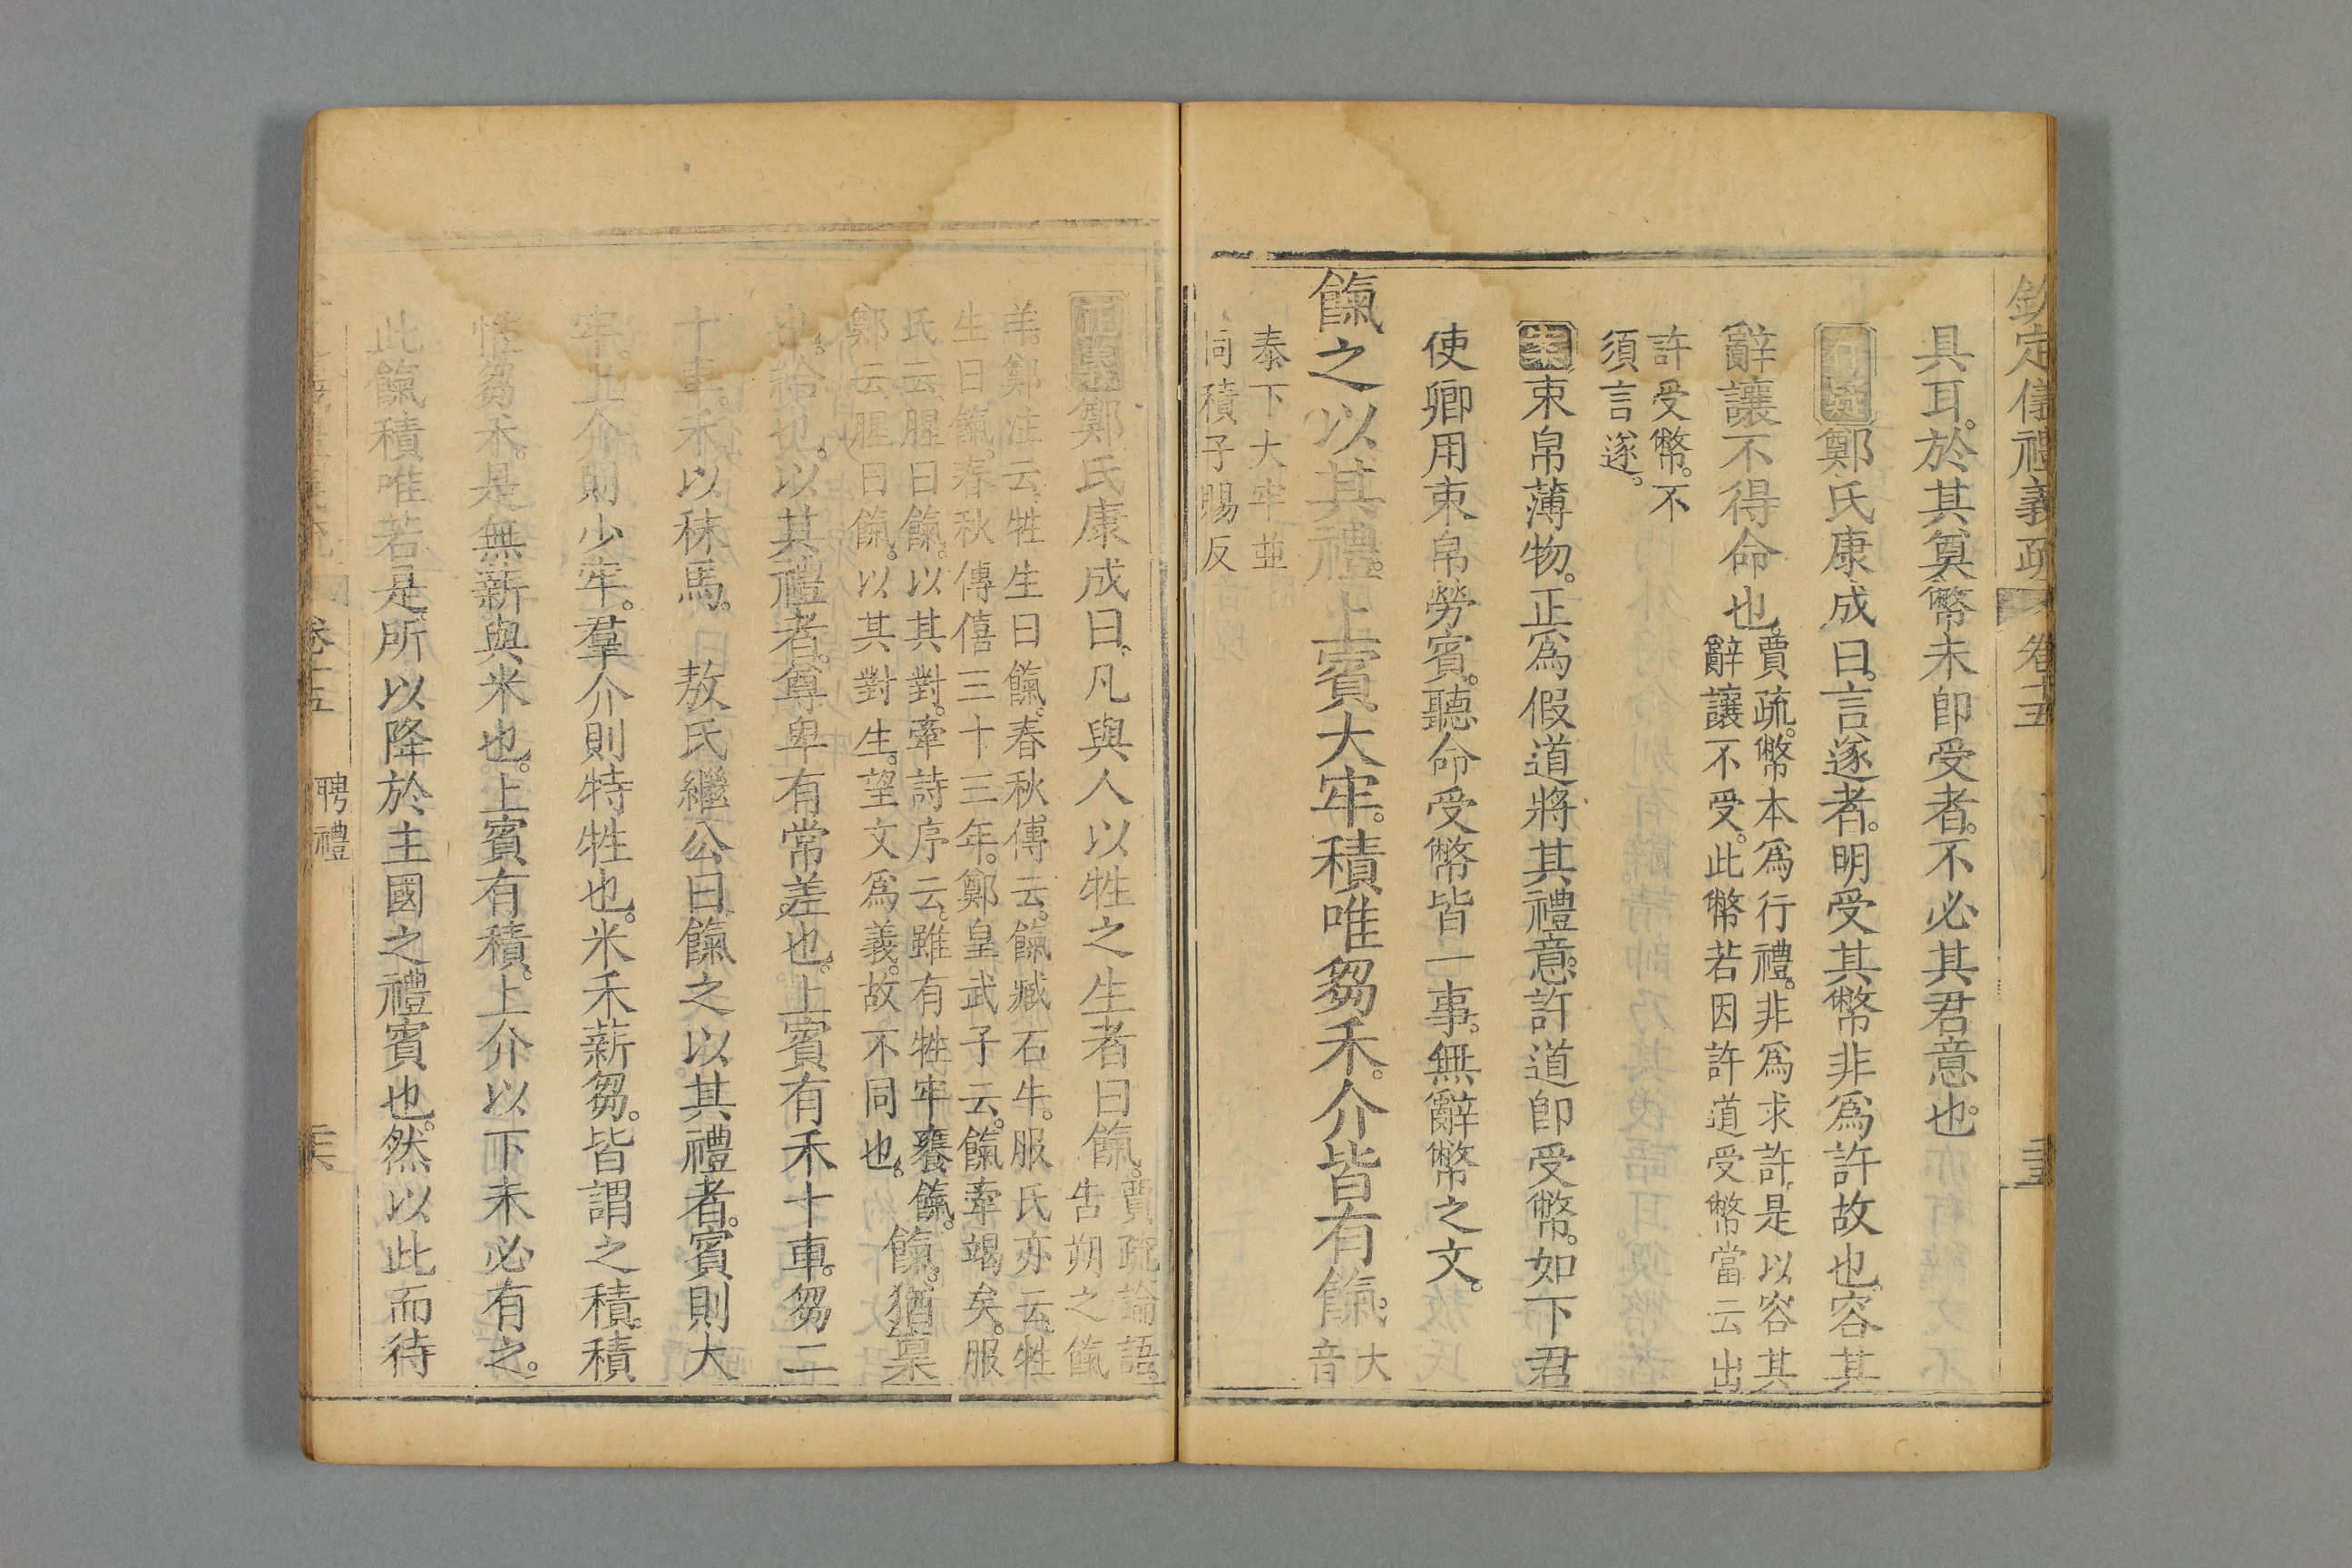 欽定儀禮義疏 卷十五
具耳。於其奠幣未卽受者。不必其君意也。
存疑鄭氏康成曰。言遂者。明受其幣非爲許故也。容其
辭讓不得命也。賈疏。幣本爲行禮。非爲求許。是以容其
辭讓不受。此幣若因許道受幣當云出
許受幣。不
須言遂。
案束帛薄物。正爲假道將其禮意。許道卽受幣。如下君
使卿用束帛勞賓。聽命受幣皆一事。無辭幣之文。
餼之以其禮。上賓大牢。積唯芻禾。介皆有餼。大
音
泰下大牢並
同積子賜反
正義鄭氏康成曰。凡與人以牲之生者曰餼。賈疏論語。
告朔之餼
羊。鄭注云。牲生曰餼。春秋傳云。餼臧石牛。服氏亦云。牲
生曰餼。春秋傳僖三十三年。鄭皇武子云。餼牽竭矣。服
氏云腥曰餼。以其對。牽詩序云。雖有牲牢饔餼。
鄭云腥曰餼。以其對生。望文爲義。故不同也。
餼。猶稟
也。給也。以其禮者。尊卑有常差也。上賓有禾十車。芻二
十車。禾以秣馬。 敖氏繼公曰餼之以其禮者。賓則大
牢。上介則少牢。羣介則特牲也。米禾薪芻。皆謂之積。積
惟芻禾。是無薪與米也。上賓有積。上介以下未必有之。
此餼積唯若是。所以降於主國之禮賓也。然以此而待
卷十五 聘禮